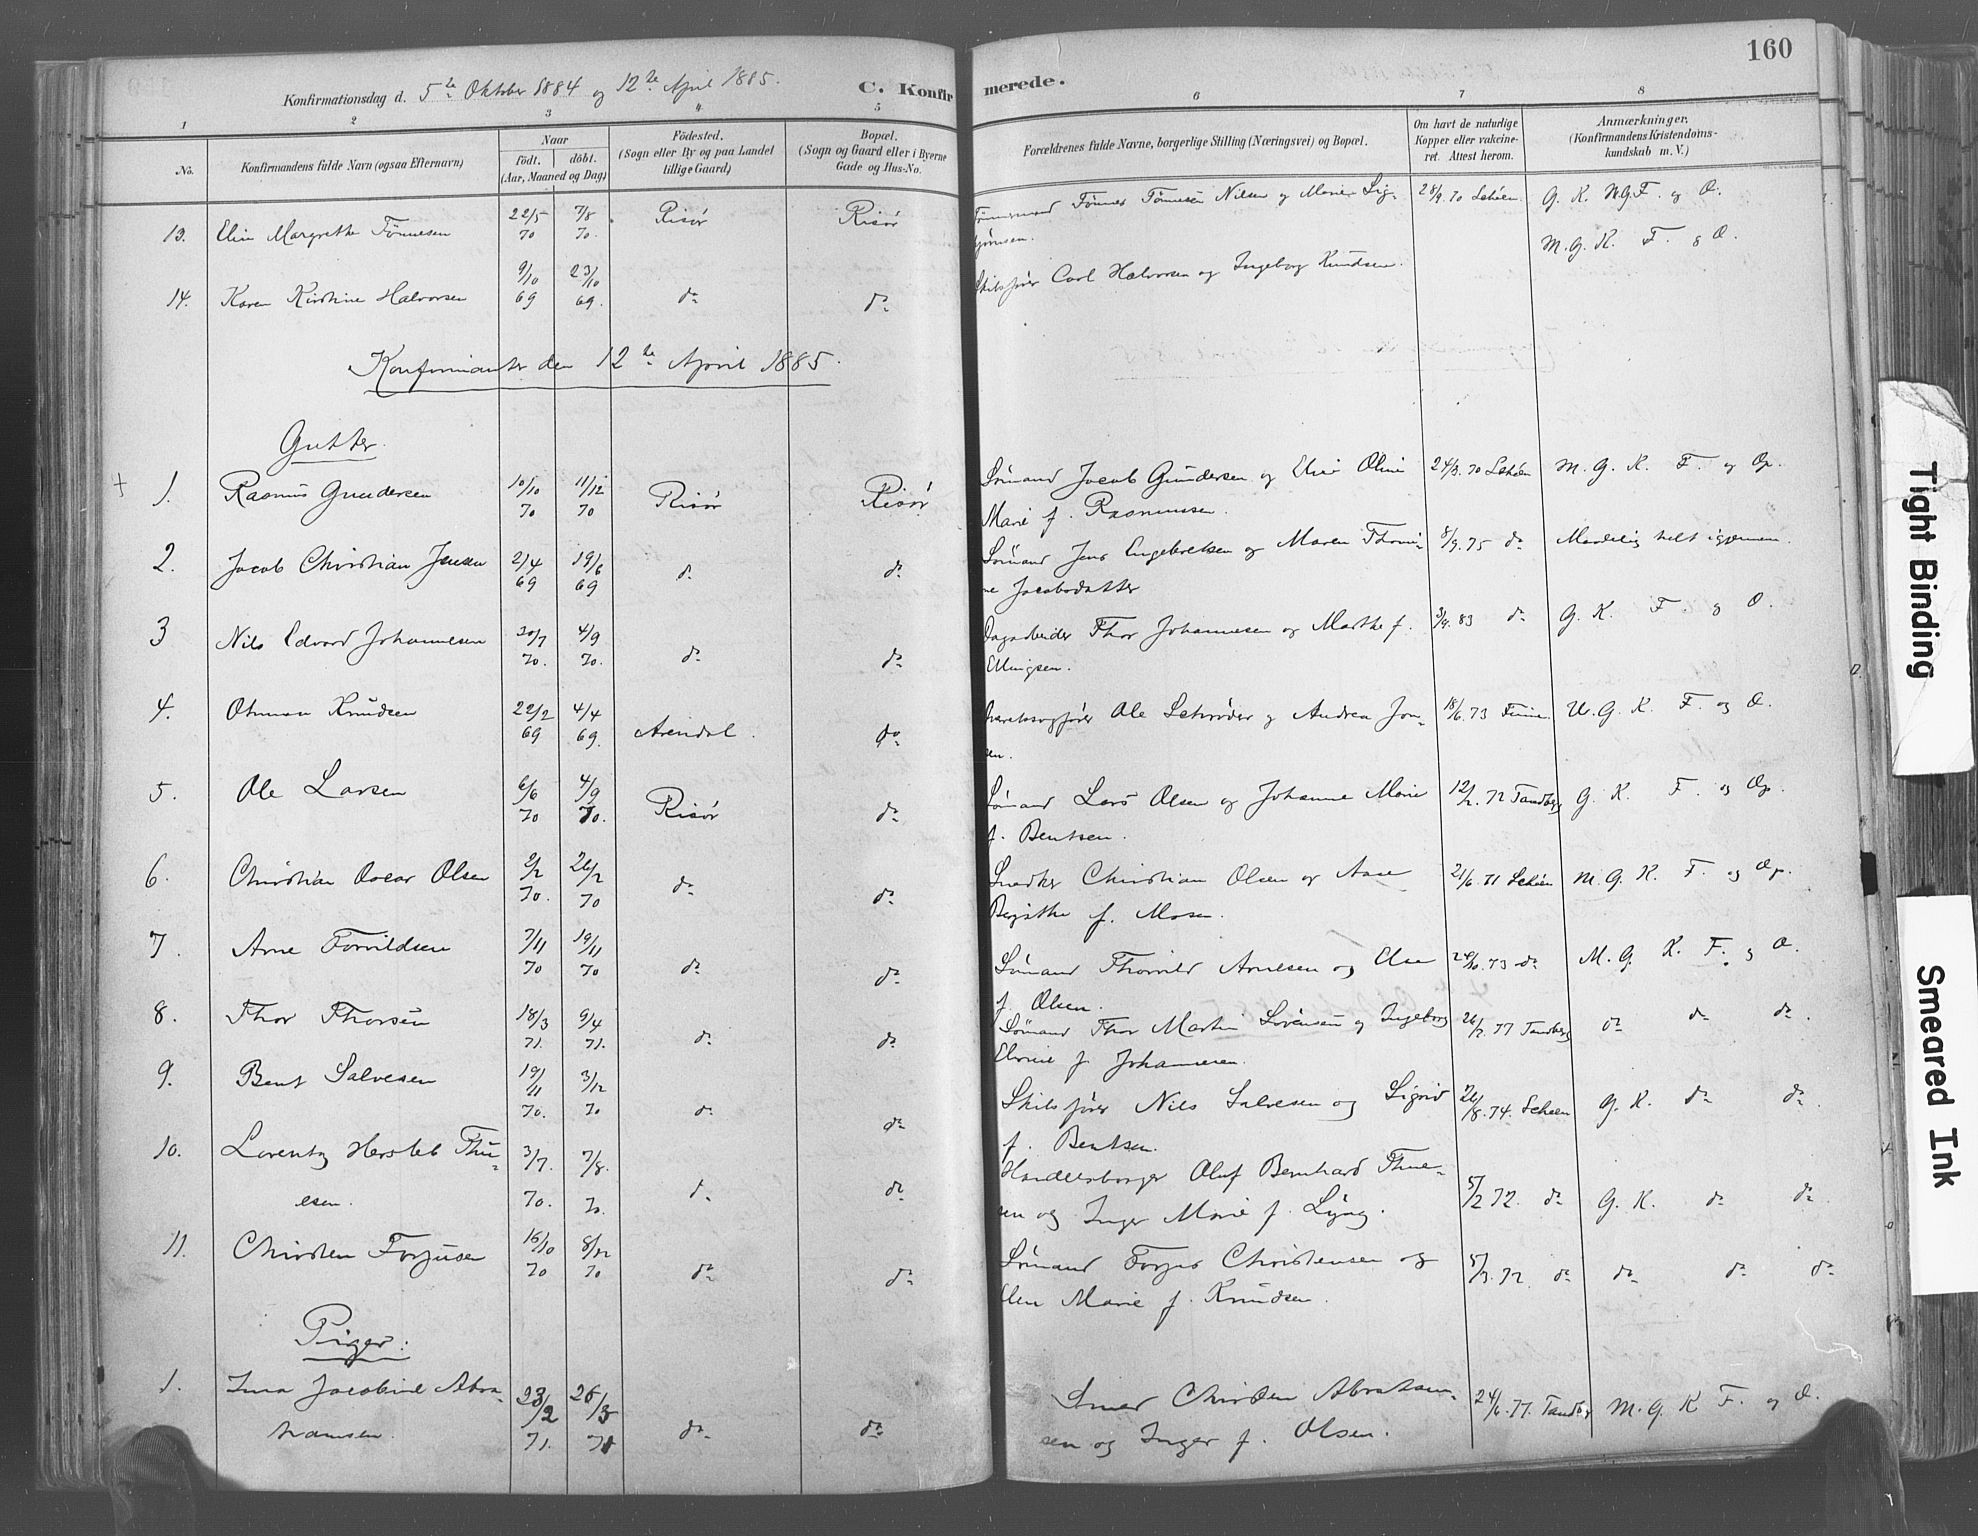 160
Konfirmationsdag d. 5te Oktober 1884 og 12te April 1885.
C. Konfirmerede.
1 2 3 4 5 6 7 8
No.
Konfirmandens fulde Navn (ogsaa Efternavn)
Naar
födt. döbt.
(Aar, Maaned og Dag)
Födested.
(Sogn eller By og paa Landet
tillige Gaard)
Bopæl.
(Sogn og Gaard eller i Byerne
Gade og Hus-No.
Forældrenes fulde Navne, borgerlige Stilling (Næringsvei) og Bopæl.
Om havt de naturlige
Kopper eller vakcine-
ret. Attest herom.
Anmærkninger.
(Konfirmandens Kristendoms-
kundskab m. V.)
13. Elin Margrethe Tönnesen 22/5 70 7/8 70. Risör Risör Tönnes Tönnesen Nilsen og Maren Sig- 28/9. 70 Schöen. G. K. N.G.F. og O.
björnsen.
14. Karen Kirstine Halvorsen 9/10 69 23/10 69. do do Skibsfører Carl Halvorsen og Ingeborg Knudsen. M. G. K. F. og O.
Konfirmanter den 12te April 1885.
Gutter.
1. Rasmus Gundersen 10/10 70 11/12 70 Risör Risör Sömand Jacob Gundersen og Elise Oline 24/8. 70 Schöen M. G. K. F. og Op.
Marie f. Rasmussen.
2. Jacob Christian Jensen 2/4 69 19/6 69 do do Sömand Jens Engebretsen og Maren Thomi- 8/9. 75 do
ne Jacobsdatter
3 Nils Edvard Johannesen 30/7 70. 4/9 70. do do Dagarbeider Thor Johannesen og Marthe f. 3/9. 83 do G. K. F. og O.
Ellingsen.
4. Otman Knudsen 22/2 69 4/4 69. Arendal. do Ole Schröder og Andrea Jon- 18/6. 73 U. G. K. F. og O.
sen.
5. Ole Larsen 6/6 70 4/9 70. Risör do Sömand Lars Olsen og Johanne Marie 12/2. 72 Tandberg G. K. F. og Op.
f. Bentsen.
6. Christian Oscar Olsen 2/2 70. 26/2 70 do do Snedker Christian Olsen og Aase 21/6. 71 Schöen M. G. K. F. og Op.
Bergitthe f. Mose.
7. Arne Torvildsen 7/11 70 19/11 70 do do Sömand Thorvild Arnesen og Else 29/10. 73 do M. G. K. F. og O.
f. Olsen.
8. Thor Thorsen 18/3 71. 9/4 71. do do Sömand Thor Martin Sörensen og Ingeborg 26/2. 77 Tandberg do do do.
Elvine f. Johannesen.
9. Bent Salvesen 19/11 70. 3/12 70 do do Skibsfører Nils Salvesen og Sigrid 26/8. 74. Schöen G. K. do do.
f. Bentsen.
10. Lorentz Hersleb Thu- 3/7. 70. 7/8. 70. do do Handelsborger Oluf Bernhard Thue- 5/2 72. do G. K. do do
esen. sen og Inger Marie f. Lyng.
11. Christen Torjusen 16/10 70 8/12 70 do do Sömand Torjus Christensen og 5/3. 72. do do do do
Elen Marie f. Knudsen.
Piger.
1. Inea Jacobine Abra- 23/2 71. 26/3 71 do do Smed Christen Abraham- 24/6. 77. Tandbg M. G. K F. og O.
hamsen. sen og Inger f. Olsen.
Tight Binding
Smeared Ink